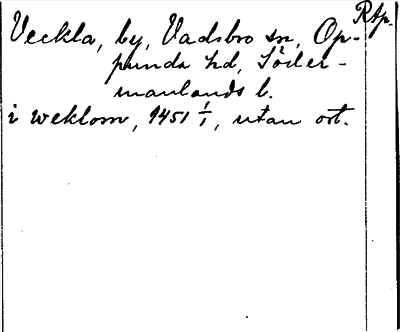 Rap.
Veckla, by, Vadsbro sn, Op-
punda hd, Söder-
manlands l.
i weklom, 1451 1/1, utan ort.